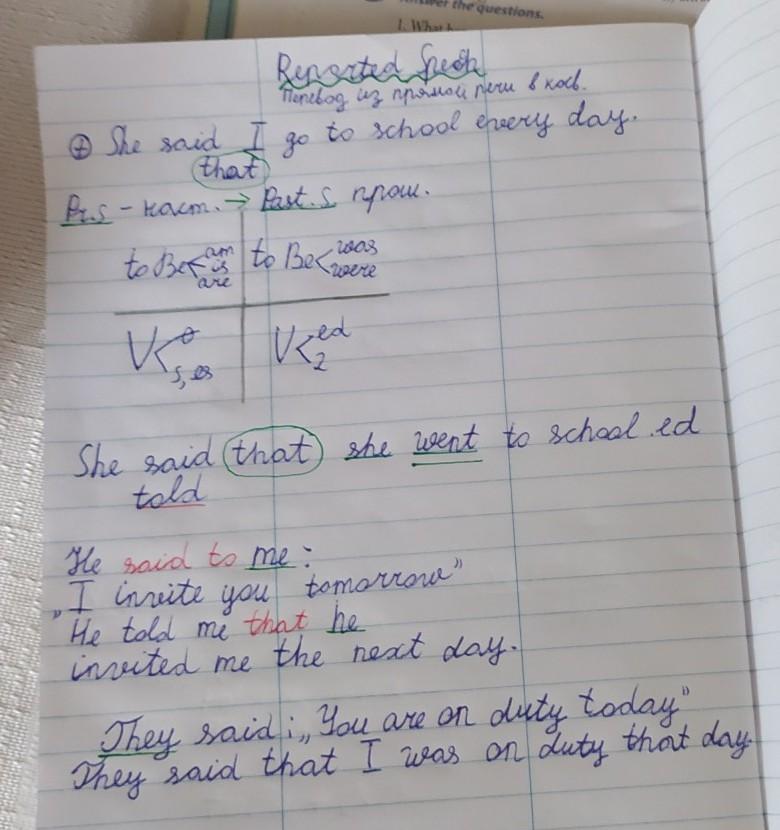 Answer the questions.
1. What
Reported Speech
Перевод из прямой речи в косв.
⊕ She said I go to school every day.
that
Pr.S - наст. → Past.S прош.
to Be < am is are to Be < was were
V < θ s, es V < ed 2
She said that she went to school .ed
told
He said to me:
„I invite you tomorrow”
He told me that he
invited me the next day.
They said: „You are on duty today”
They said that I was on duty that day.